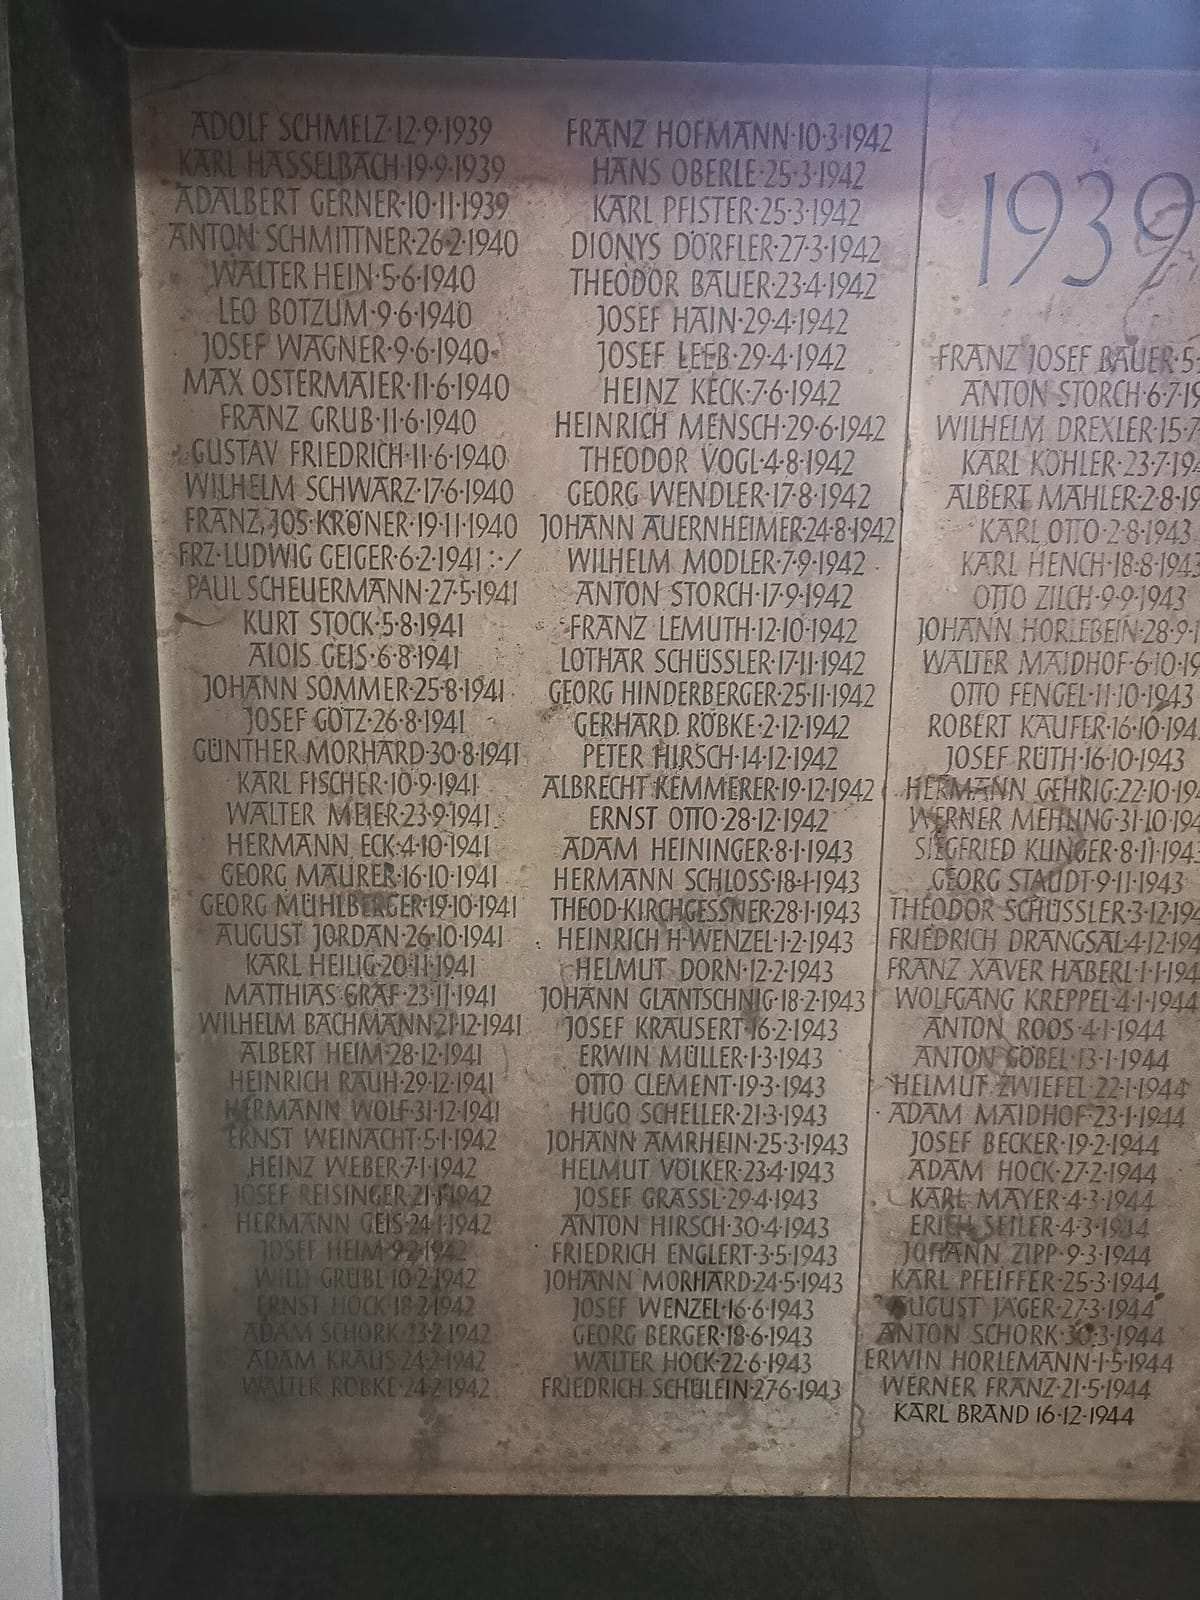 ADOLF SCHMELZ·12·9·1939
KARL HASSELBACH·19·9·1939
ADALBERT GERNER·10·11·1939
ANTON SCHMITTNER·26·2·1940
WALTER HEIN·5·6·1940
LEO BOTZUM·9·6·1940
JOSEF WAGNER·9·6·1940
MAX OSTERMAIER·11·6·1940
FRANZ GRUB·11·6·1940
GUSTAV FRIEDRICH·11·6·1940
WILHELM SCHWARZ·17·6·1940
FRANZ, JOS·KRÖNER·19·11·1940
FRZ·LUDWIG GEIGER·6·2·1941
PAUL SCHEUERMANN·27·5·1941
KURT STOCK·5·8·1941
ALOIS GEIS·6·8·1941
JOHANN SOMMER·25·8·1941
JOSEF GÖTZ·26·8·1941
GÜNTHER MORHARD·30·8·1941
KARL FISCHER·10·9·1941
WALTER MEIER·23·9·1941
HERMANN ECK·4·10·1941
GEORG MAURER·16·10·1941
GEORG MÜHLBERGER·19·10·1941
AUGUST JORDAN·26·10·1941
KARL HEILIG·20·11·1941
MATTHIAS GRAF·23·11·1941
WILHELM BACHMANN·21·12·1941
ALBERT HEIM·28·12·1941
HEINRICH RAUH·29·12·1941
HERMANN WOLF·31·12·1941
ERNST WEINACHT·5·1·1942
HEINZ WEBER·7·1·1942
JOSEF REISINGER·21·1·1942
HERMANN GEIS·24·1·1942
JOSEF HEIM·9·2·1942
WILLI GRÜBL·10·2·1942
ERNST HOCK·18·2·1942
ADAM SCHORK·23·2·1942
ADAM KRAUS·24·2·1942
WALTER RÖBKE·24·2·1942
FRANZ HOFMANN·10·3·1942
HANS OBERLE·25·3·1942
KARL PFISTER·25·3·1942
DIONYS DÖRFLER·27·3·1942
THEODOR BAUER·23·4·1942
JOSEF HAIN·29·4·1942
JOSEF LEEB·29·4·1942
HEINZ KECK·7·6·1942
HEINRICH MENSCH·29·6·1942
THEODOR VOGL·4·8·1942
GEORG WENDLER·17·8·1942
JOHANN AUERNHEIMER·24·8·1942
WILHELM MODLER·7·9·1942
ANTON STORCH·17·9·1942
FRANZ LEMUTH·12·10·1942
LOTHAR SCHÜSSLER·17·11·1942
GEORG HINDERBERGER·25·11·1942
GERHARD RÖBKE·2·12·1942
PETER HIRSCH·14·12·1942
ALBRECHT KEMMERER·19·12·1942
ERNST OTTO·28·12·1942
ADAM HEININGER·8·1·1943
HERMANN SCHLOSS·18·1·1943
THEOD·KIRCHGESSNER·28·1·1943
HEINRICH H·WENZEL·1·2·1943
HELMUT DORN·12·2·1943
JOHANN GLANTSCHNIG·18·2·1943
JOSEF KRAUSERT·16·2·1943
ERWIN MÜLLER·1·3·1943
OTTO CLEMENT·19·3·1943
HUGO SCHELLER·21·3·1943
JOHANN AMRHEIN·25·3·1943
HELMUT VÖLKER·23·4·1943
JOSEF GRASSL·29·4·1943
ANTON HIRSCH·30·4·1943
FRIEDRICH ENGLERT·3·5·1943
JOHANN MORHARD·24·5·1943
JOSEF WENZEL·16·6·1943
GEORG BERGER·18·6·1943
WALTER HOCK·22·6·1943
FRIEDRICH SCHÜLEIN·27·6·1943
1939
FRANZ JOSEF BAUER·5
ANTON STORCH·6·7·19
WILHELM DREXLER·15·7
KARL KÖHLER·23·7·194
ALBERT MAHLER·2·8·19
KARL OTTO·2·8·1943
KARL HENCH·18·8·1943
OTTO ZILCH·9·9·1943
JOHANN HORLEBEIN·28·9·1
WALTER MAIDHOF·6·10·19
OTTO FENGEL·11·10·1943
ROBERT KAUFER·16·10·194
JOSEF RÜTH·16·10·1943
HERMANN GEHRIG·22·10·194
WERNER MEHLING·31·10·194
SIEGFRIED KLINGER·8·11·1943
GEORG STAUDT·9·11·1943
THEODOR SCHÜSSLER·3·12·194
FRIEDRICH DRANGSAL·4·12·194
FRANZ XAVER HABERL·1·1·194
WOLFGANG KREPPEL·4·1·1944
ANTON ROOS·4·1·1944
ANTON GÖBEL·13·1·1944
HELMUT ZWIEFEL·22·1·1944
ADAM MAIDHOF·23·1·1944
JOSEF BECKER·19·2·1944
ADAM HOCK·27·2·1944
KARL MAYER·4·3·1944
ERICH SEILER·4·3·1944
JOHANN ZIPP·9·3·1944
KARL PFEIFFER·25·3·1944
AUGUST JÄGER·27·3·1944
ANTON SCHORK·30·3·1944
ERWIN HORLEMANN·1·5·1944
WERNER FRANZ·21·5·1944
KARL BRAND 16·12·1944